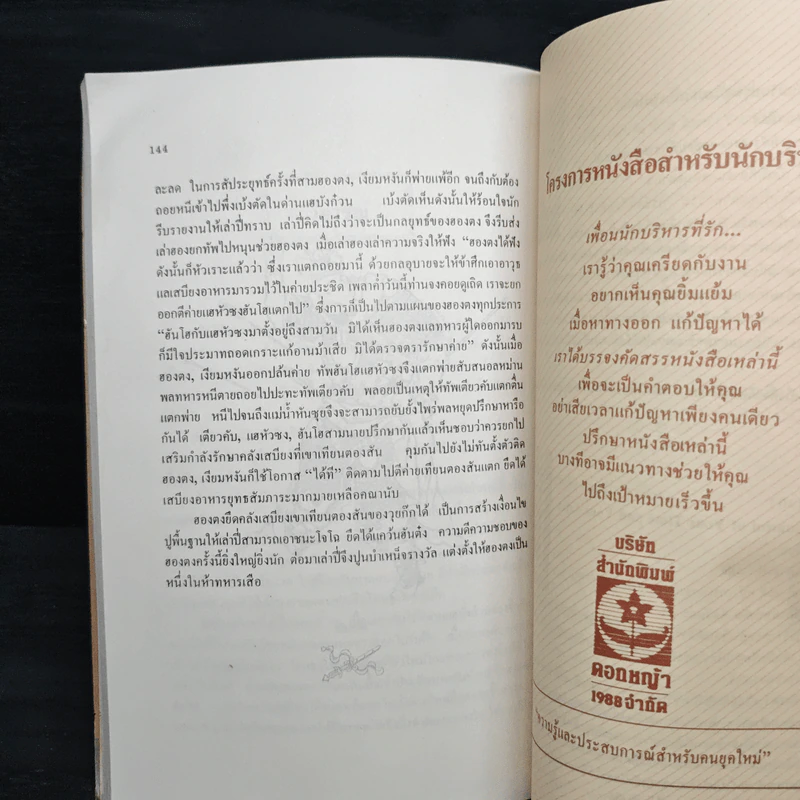 144
ละลด ในการสัประยุทธ์ครั้งที่สามฮองตง, เงียมหงันก็พ่ายแพ้อีก จนถึงกับต้อง
ถอยหนีเข้าไปพึ่งเบ้งตัดในด่านแฮบังก๋วน เบ้งตัดเห็นดังนั้นให้ร้อนใจนัก
รีบรายงานให้เล่าปี่ทราบ เล่าปี่คิดไม่ถึงว่าจะเป็นกลยุทธ์ของฮองตง จึงรีบส่ง
เล่าฮองยกทัพไปหนุนช่วยฮองตง เมื่อเล่าฮองเล่าความจริงให้ฟัง “ฮองตงได้ฟัง
ดังนั้นก็หัวเราะแล้วว่า ซึ่งเราแตกถอยมานี้ ด้วยกลอุบายจะให้ข้าศึกเอาอาวุธ
แลเสบียงอาหารมารวมไว้ในค่ายประชิด เพลาค่ำวันนี้ท่านจงคอยดูเถิด เราจะยก
ออกตีค่ายแฮหัวซงฮันโฮแตกไป” ซึ่งการก็เป็นไปตามแผนของฮองตงทุกประการ
“ฮันโฮกับแฮหัวซงมาตั้งอยู่ถึงสามวัน มิได้เห็นฮองตงแลทหารผู้ใดออกมารบ
ก็มีใจประมาทถอดเกราะแก้อานม้าเสีย มิได้ตรวจตรารักษาค่าย” ดังนั้นเมื่อ
ฮองตง, เงียมหงันออกปล้นค่าย ทัพฮันโฮแฮหัวซงจึงแตกพ่ายสับสนอลหม่าน
พลทหารหนีตายถอยไปปะทะทัพเตียวคับ พลอยเป็นเหตุให้ทัพเตียวคับแตกตื่น
แตกพ่าย หนีไปจนถึงแม่น้ำหันซุยจึงจะสามารถยับยั้งไพร่พลหยุดปรึกษาหารือ
กันได้ เตียวคับ, แฮหัวซง, ฮันโฮสามนายปรึกษากันแล้วเห็นชอบว่าควรยกไป
เสริมกำลังรักษาคลังเสบียงที่เขาเทียนตองสัน คุมกันไปยังไม่ทันตั้งตัวติด
ฮองตง, เงียมหงันก็ใช้โอกาส “ได้ที” ติดตามไปตีค่ายเทียนตองสันแตก ยึดได้
เสบียงอาหารยุทธสัมภาระมากมายเหลือคณานับ
ฮองตงยึดคลังเสบียงเขาเทียนตองสันของวุยก๊กได้ เป็นการสร้างเงื่อนไข
ปูพื้นฐานให้เล่าปี่สามารถเอาชนะโจโฉ ยึดได้แคว้นฮันต๋ง ความดีความชอบของ
ฮองตงครั้งนี้ยิ่งใหญ่ยิ่งนัก ต่อมาเล่าปี่จึงปูนบำเหน็จรางวัล แต่งตั้งให้ฮองตงเป็น
หนึ่งในห้าทหารเสือ
โครงการหนังสือสำหรับนักบริห
เพื่อนนักบริหารที่รัก...
เรารู้ว่าคุณเครียดกับงาน
อยากเห็นคุณยิ้มแย้ม
เมื่อหาทางออก แก้ปัญหาได้
เราได้บรรจงคัดสรรหนังสือเหล่านี้
เพื่อจะเป็นคำตอบให้คุณ
อย่าเสียเวลาแก้ปัญหาเพียงคนเดียว
ปรึกษาหนังสือเหล่านี้
บางทีอาจมีแนวทางช่วยให้คุณ
ไปถึงเป้าหมายเร็วขึ้น
บริษัท
สำนักพิมพ์
ดอกหญ้า
1988จำกัด
“ความรู้และประสบการณ์สำหรับคนยุคใหม่”